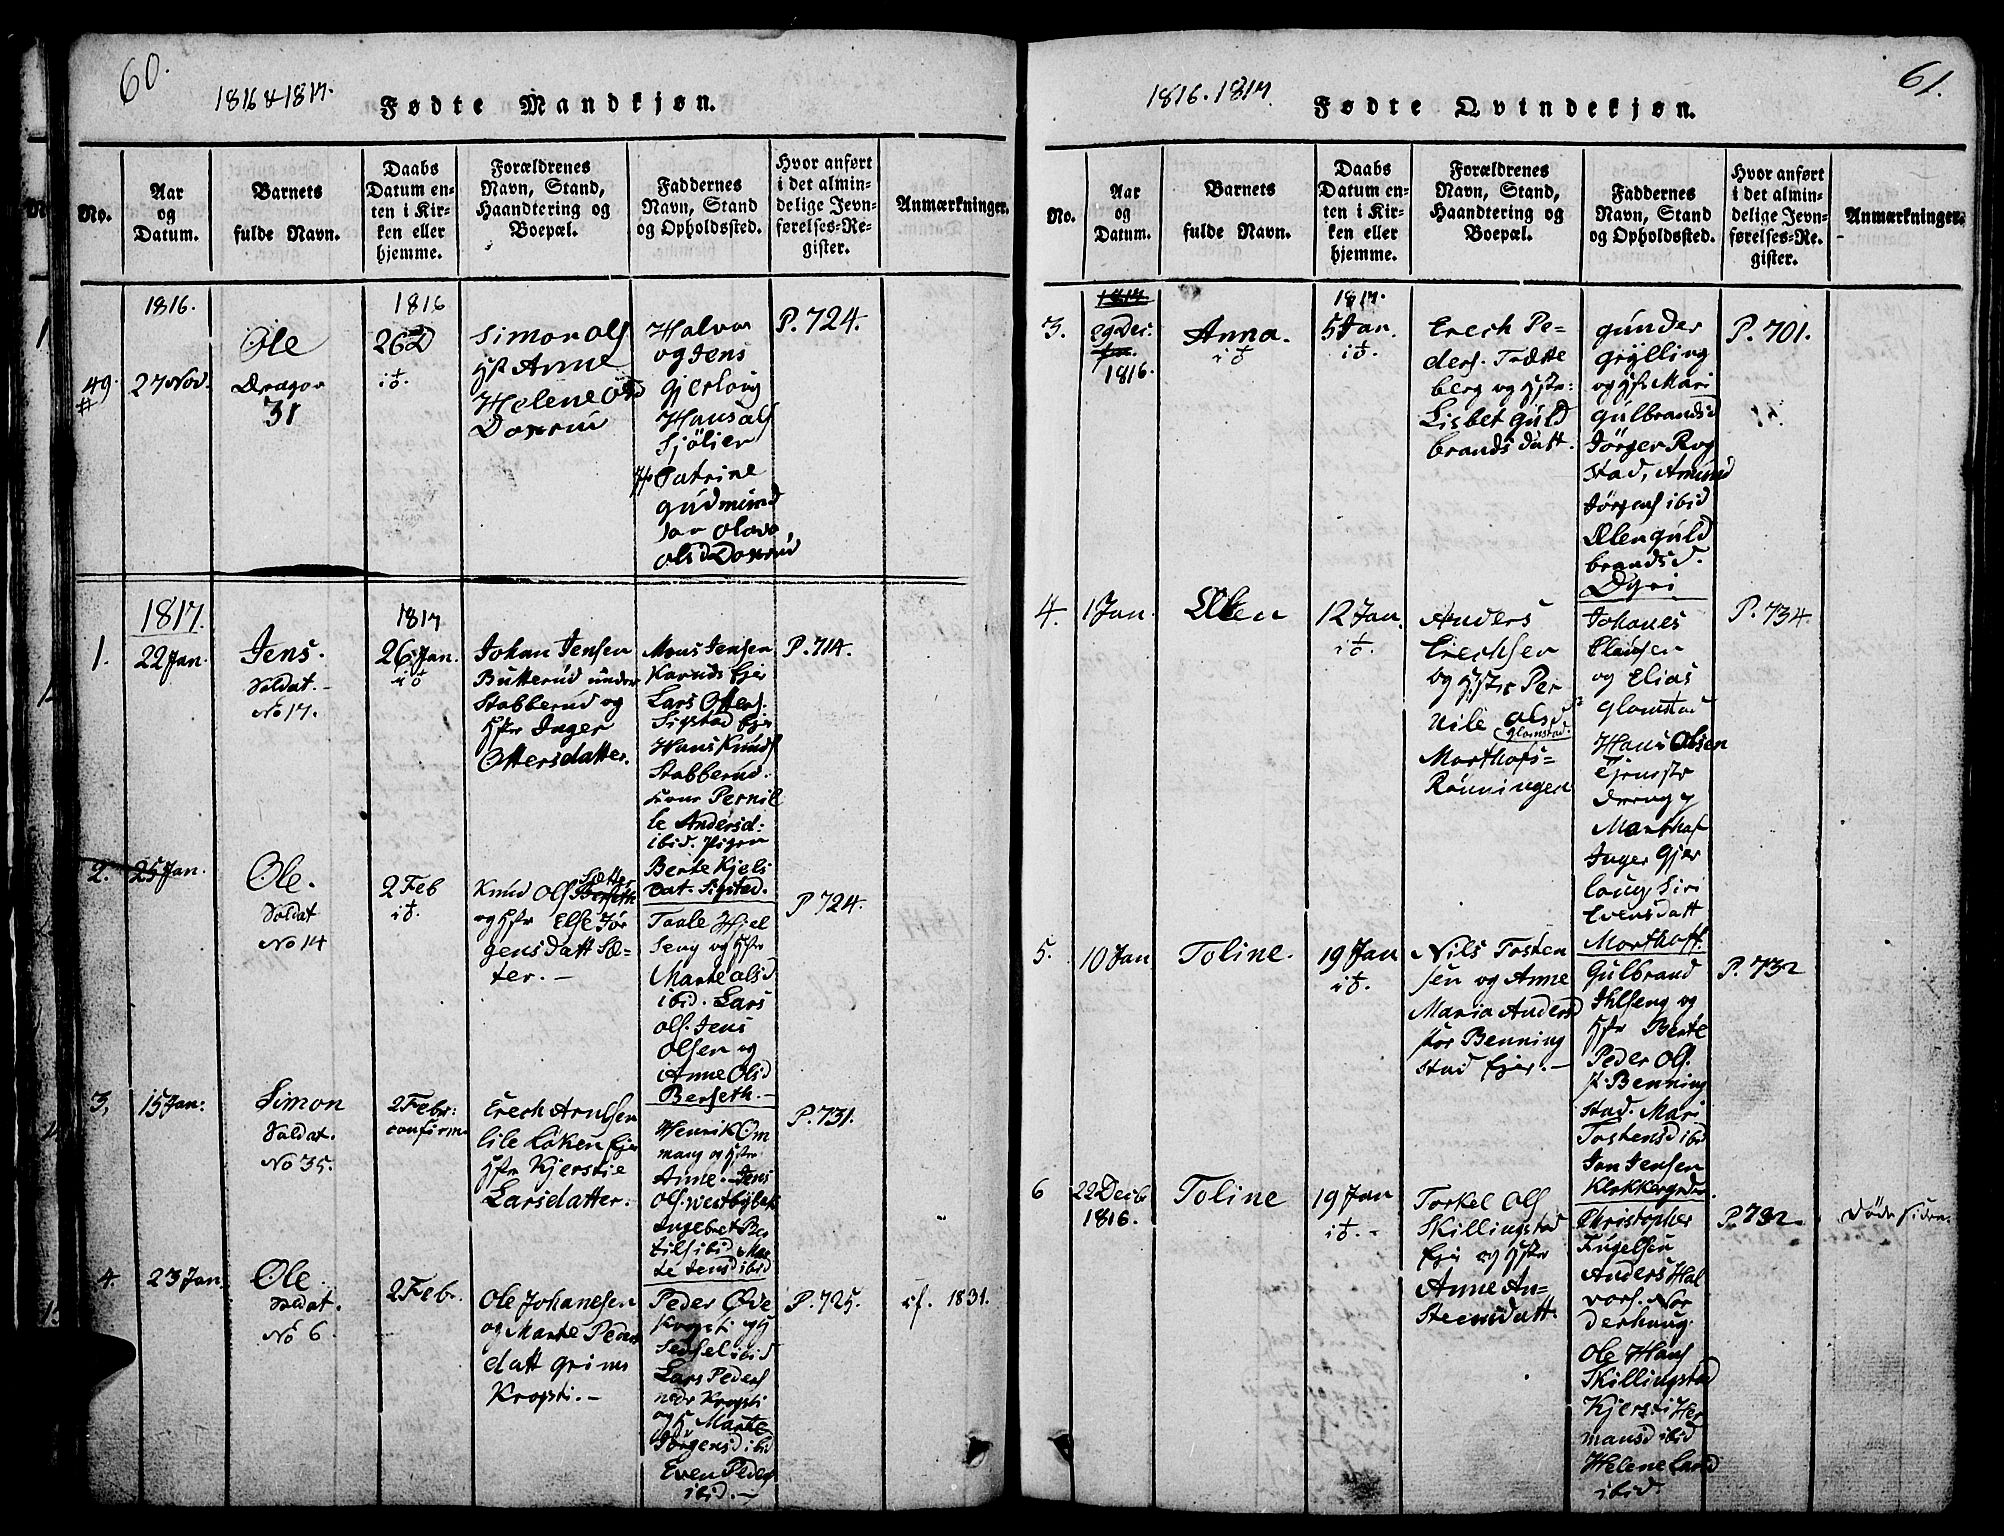 60.
1816 & 1817.
Fødte Mandkjøn.
No.
Aar
og
Datum.
Barnets
fulde Navn.
Daabs
Datum en-
ten i Kir-
ken eller
hjemme.
Forældrenes
Navn, Stand,
Haandtering og
Boepæl.
Faddernes
Navn, Stand
og Opholdssted.
Hvor anført
i det almin-
delige Jevn-
førelses-Re-
gister.
Anmærkninger.
49.
1816.
27 Nov.
Ole
Dragon
31
1816
26 D
Simon Ols
Anne
Helene
Halvor
og Jens
Gjerlaug
Hans Ols
Sjølier
Catrine
Gudmund
P. 724.
1817.
1.
22 Jan.
Jens.
Soldat.-
No 17.
1817
26 Jan.
Johan Jensen
Butterud under
Stabberud og
Hstr Inger
Ottersdatter.
Mons Jensen
Lars Otters.
Sigstad Ejer
Hans Knuds
Stabberud.
Pernil
le Andersd:
ibid. Pigen
Berte Kjels
Dat. Sigstad.
P. 714.
2.
25 Jan.
Ole.
Soldat
No 14
2 Feb
Knud Ols Berseth
og Hstr Else Jør
gensdatt Sæ-
ter.-
Taale Hjel
seng og Hstr
Marte Olsd
ibid. Lars
Ols. Jens
Olsen og
Anne Olsd
Berseth.-
P 724.
3.
15 Jan:
Simon
Soldat.
No 35.
2 Febr:
confirm.
Erech Arnesen
Lile Løken Ejer
Hstr Kjerstie
Larsdatter.
Henrik Om
mang og Hstr.
Anne. Jens
Ols.
Ingebret Ber
tils ibid Mar
te Jensd ibid
P. 731.
4.
23 Jan
Ole.
Soldat.
No 6.
2 Febr.
Ole Johanesen
og Marte Peders
datt Grims
Kropsti.-
Peder Øvre
Kropsti og H
Sedsel ibid
Lars Peders
nedr Kropsti
og H Marte
Jørgensd ibid
Even Peders
ibid.-
P. 725.
cf. 1831.
61.
1816. 1817.
Fødte Qvindekjøn.
No.
Aar
og
Datum.
Barnets
fulde Navn.
Daabs
Datum en-
ten i Kir-
ken eller
hjemme.
Forældrenes
Navn, Stand,
Haandtering og
Boepæl.
Faddernes
Navn, Stand
og Opholdssted.
Hvor anført
i det almin-
delige Jevn-
førelses-Re-
gister.
Anmærkninger.
3.
1817
29 Dec.
1816.
Anna.
1817.
5 Jan.
Erech Pe-
ders. Trætte
berg og Hstr:
Lisbet Guld
brandsdatt.
Gunder
Grylling
og Hst. Mari
Gulbrandsd
Jørgen Rog
stad, Amund
Jørgens ibid
Ølen Guld
brandsd.
Dyri
P. 701.
4.
1 Jan.
Ølen
12 Jan.
Anders
Erechsen
og Hstr Per
nile Olsd
Glomstad.
Morthofs=
Rønningen
Johanes
Clausen
og Elias
Glomstad
Hans Olsen
Tjeneste
dreng
Morthof
Inger Gjer
loug, Siri
Evensdatt
Morthoff.
P. 734.
5.
10 Jan
Toline.
19 Jan
Nils Tosten
sen og Anne
Maria Andersd
stor Benning
stad Ejer.-
Gulbrand
Ihlseng og
Hstr Berte
Peder Ols.
st: Benning
stad. Mari
Tostensd ibid
Jan Jensen
P. 732
6
22 Decb
1816.
Toline
19 Jan
Torkel Ols
Skillingstad
Ejer og Hstr
Anne An-
steensdatt.
Christopher
Fugelsen
Anders Hal
vors. Nor
derhaug.
Ole Hans
Skillingstad
Kjersti Her
mansd ibid
Helene Larsd
ibid.
P. 732.
Døde siden.